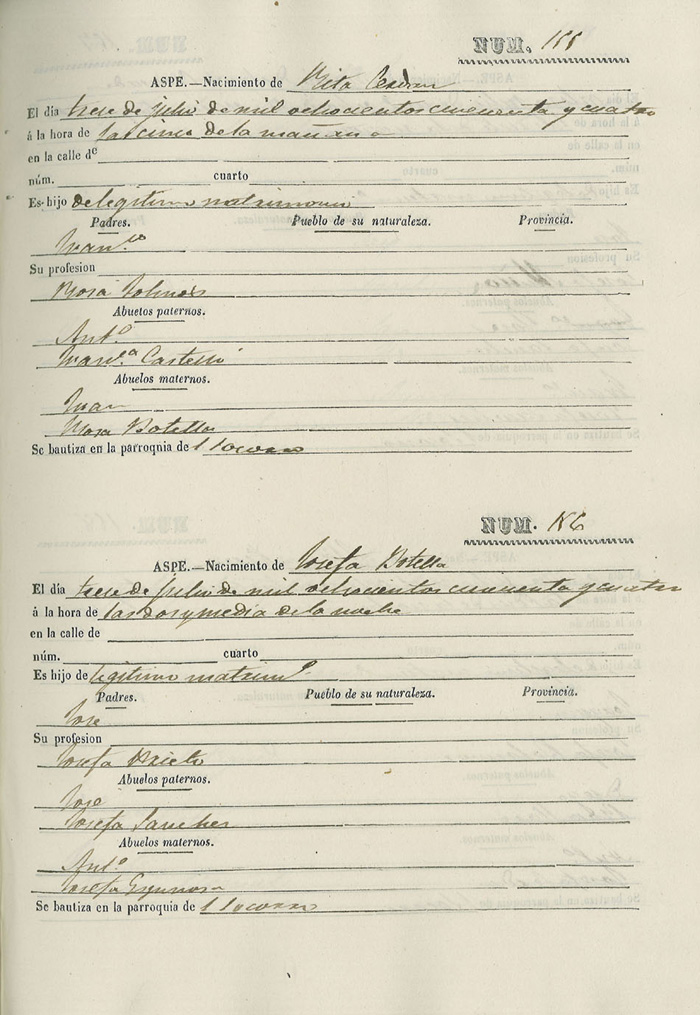 NUM. 185
ASPE.—Nacimiento de Rita Cerdan
El día trese de julio de mil ochocientos cincuenta y cuatro
á la hora de las cinco de la mañana
en la calle de
núm. cuarto
Es hijo de legitimo matrimonio
Padres. Pueblo de su naturaleza. Provincia.
Fran.co
Su profesion
Rosa
Abuelos paternos.
Ant.o
Fran.ca Castelló
Abuelos maternos.
Juan
Rosa Botella
Se bautiza en la parroquia de l Socorro
NUM. 186
ASPE.—Nacimiento de Josefa Botella
El día trese de julio de mil ochocientos cincuenta y cuatro
á la hora de las dos y media de la noche
en la calle de
núm. cuarto
Es hijo de legitimo matrim.o
Padres. Pueblo de su naturaleza. Provincia.
Jose
Su profesion
Josefa Prieto
Abuelos paternos.
Jose
Josefa Sanches
Abuelos maternos.
Ant.o
Josefa Espinosa
Se bautiza en la parroquia de l Socorro